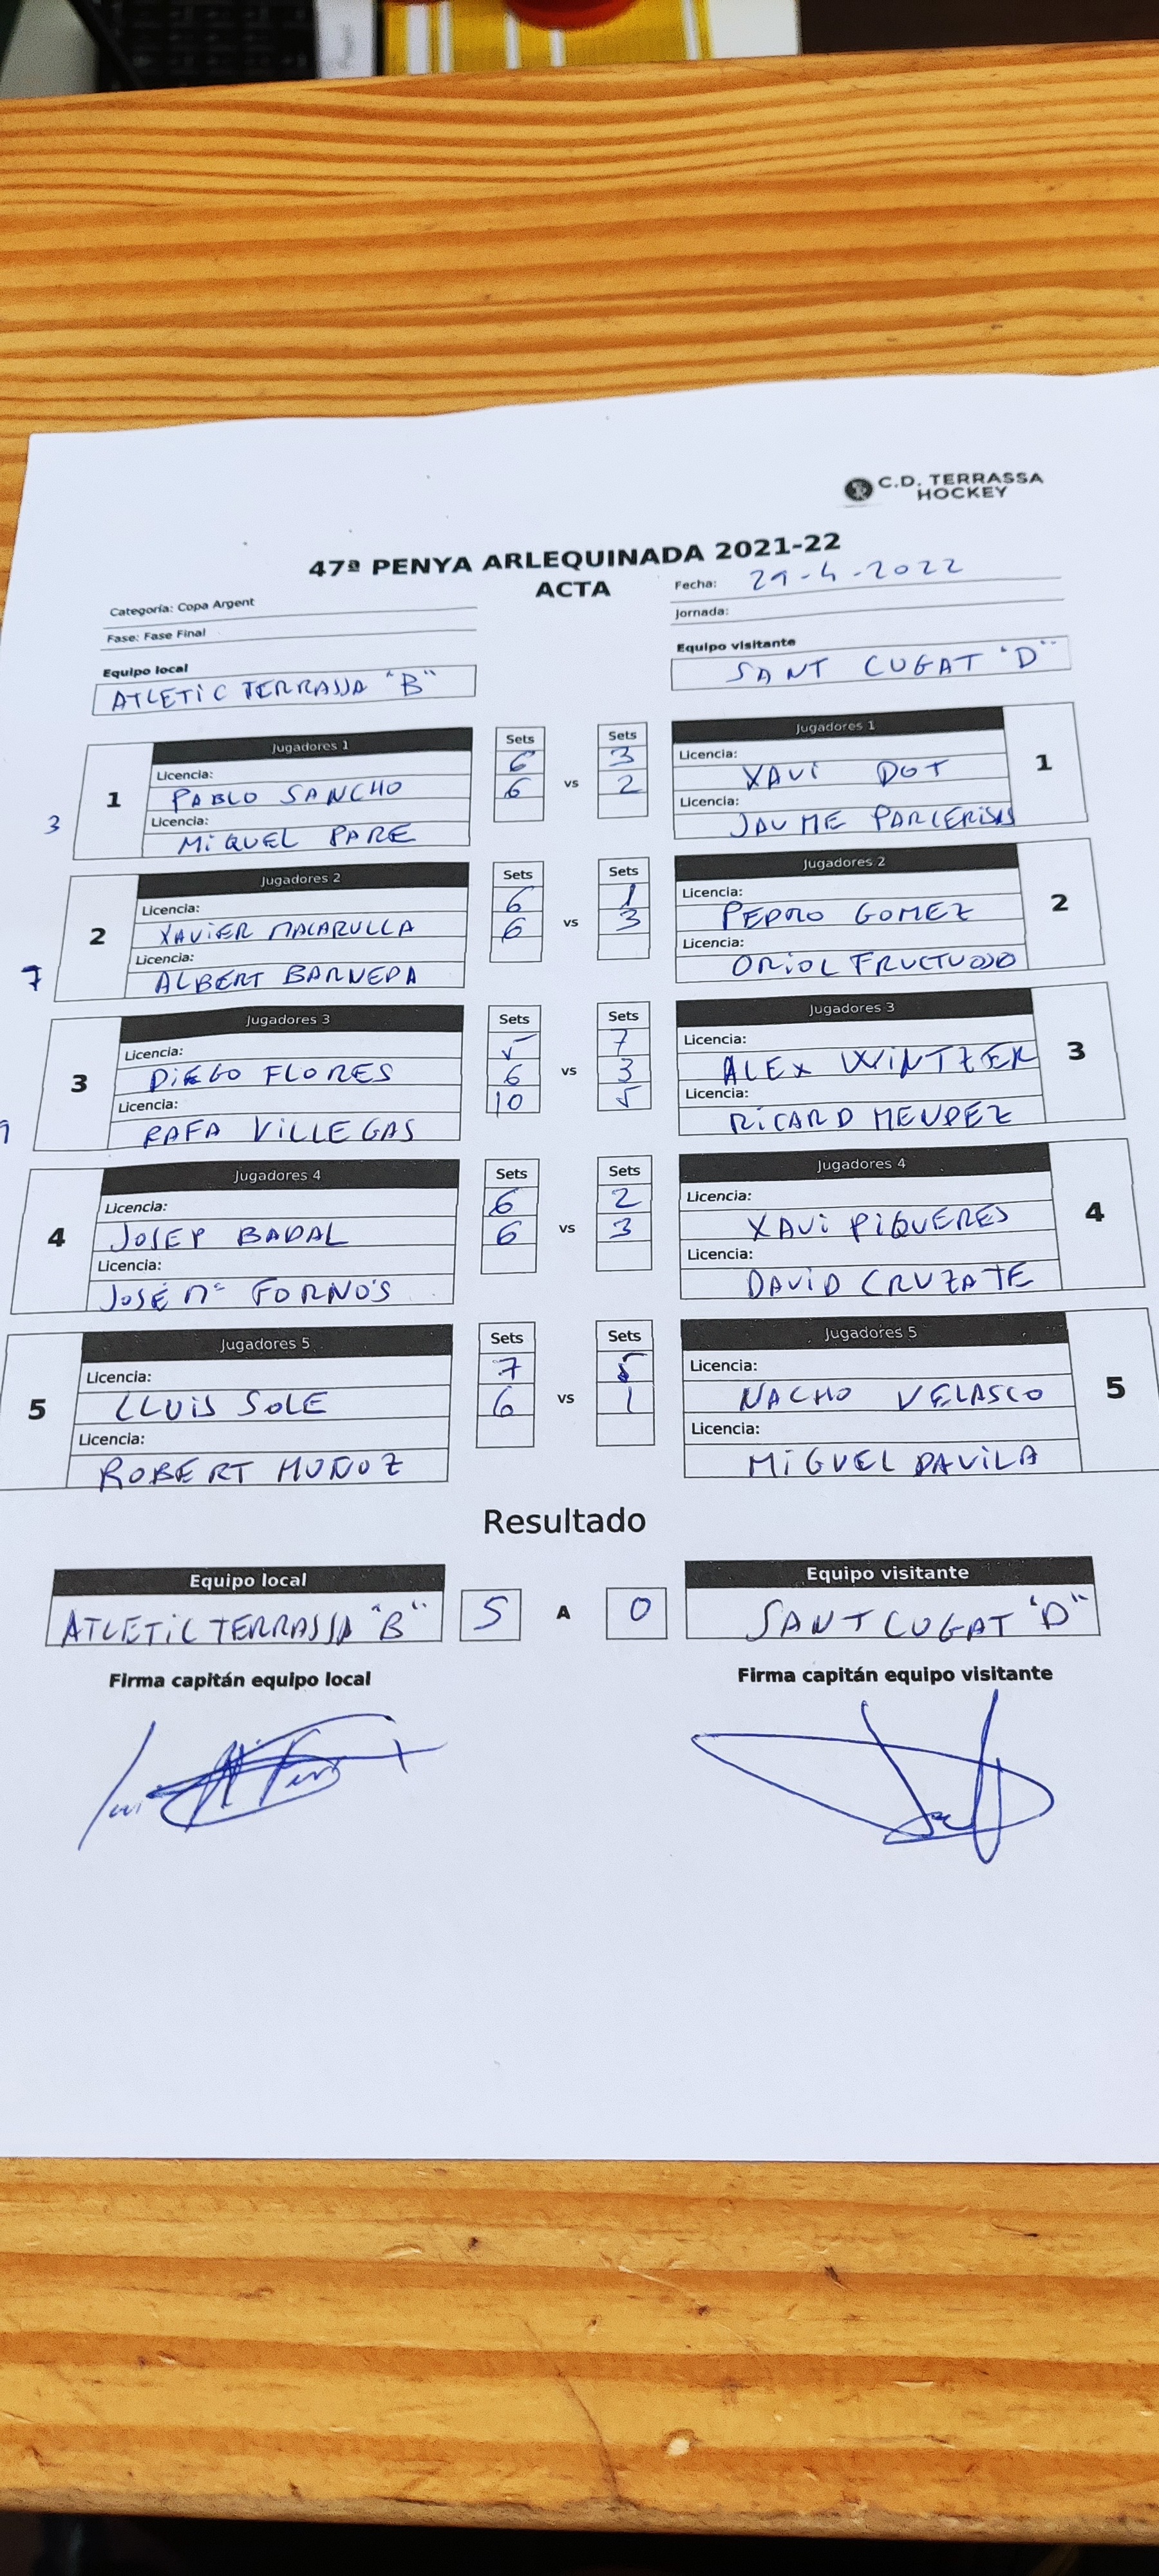 C.D. TERRASSA
HOCKEY
47ª PENYA ARLEQUINADA 2021-22
ACTA
Categoría: Copa Argent
Fecha: 29-4-2022
Fase: Fase Final
Jornada:
Equipo local
Equipo visitante
ATLETIC TERRASSA "B"
SANT CUGAT "D"
Jugadores 1 Sets Sets Jugadores 1
1 Licencia: 6 3 Licencia: 1
PABLO SANCHO 6 vs 2 XAVI DOT
3 Licencia: Licencia:
MIQUEL PARE JAUME PARCERISAS
Jugadores 2 Sets Sets Jugadores 2
2 Licencia: 6 1 Licencia: 2
XAVIER MACARULLA 6 vs 3 PEDRO GOMEZ
7 Licencia: Licencia:
ALBERT BARNEDA ORIOL FRUCTUOSO
Jugadores 3 Sets Sets Jugadores 3
3 Licencia: 5 7 Licencia: 3
DIEGO FLORES 6 vs 3 ALEX WINTZER
Licencia: 10 5 Licencia:
RAFA VILLEGAS RICARD MENDEZ
Jugadores 4 Sets Sets Jugadores 4
4 Licencia: 6 2 Licencia: 4
JOSEP BADAL 6 vs 3 XAVI PIQUERES
Licencia: Licencia:
JOSÉ Mª FORNÓS DAVID CRUZATE
Jugadores 5 Sets Sets Jugadores 5
5 Licencia: 7 5 Licencia: 5
LLUIS SOLE 6 vs 1 NACHO VELASCO
Licencia: Licencia:
ROBERT MUÑOZ MIGUEL DAVILA
Resultado
Equipo local Equipo visitante
ATLETIC TERRASSA "B" 5 A 0 SANT CUGAT "D"
Firma capitán equipo local Firma capitán equipo visitante